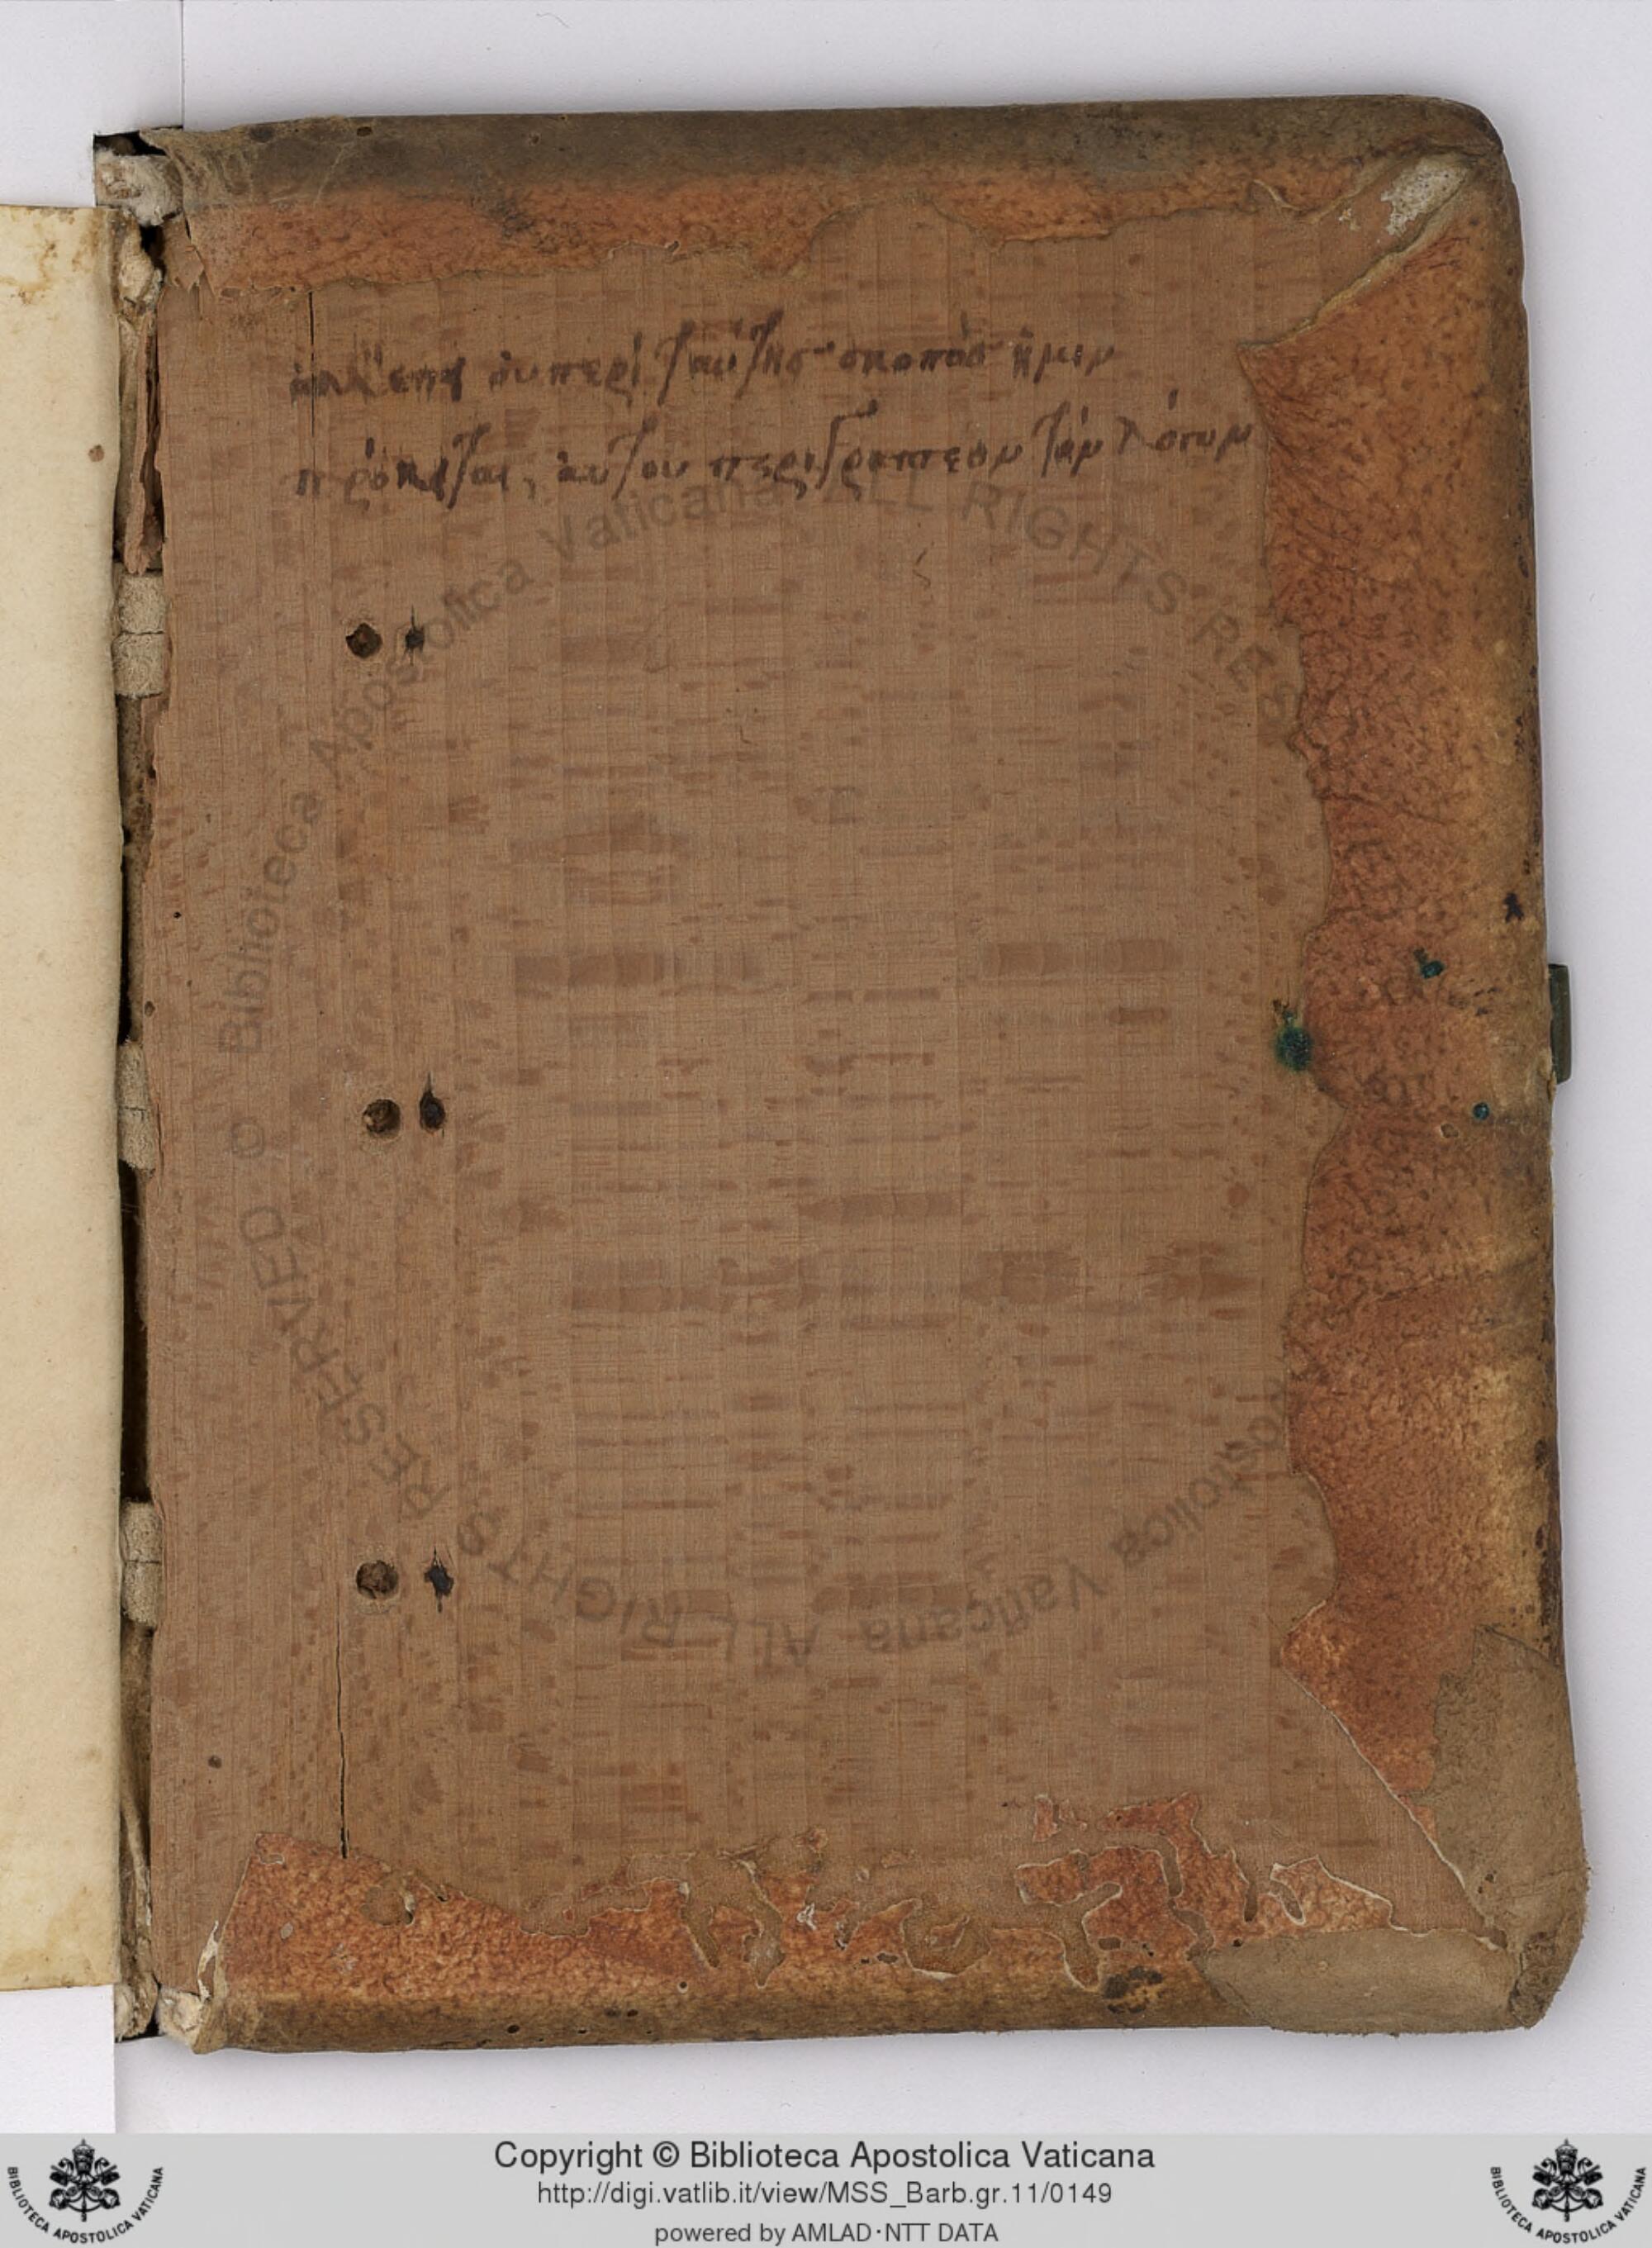 ἀλλ' ἐπεὶ ὀυ περὶ ταύτης σκοπὸσ ἡμιν
πρόκειται, ἀυτου περιγραπτεον τὸν λόγον
© Biblioteca Apostolica Vaticana ALL RIGHTS RESERVED
© Biblioteca Apostolica Vaticana ALL RIGHTS RESERVED
Copyright © Biblioteca Apostolica Vaticana
http://digi.vatlib.it/view/MSS_Barb.gr.11/0149
powered by AMLAD·NTT DATA
BIBLIOTECA APOSTOLICA VATICANA
BIBLIOTECA APOSTOLICA VATICANA